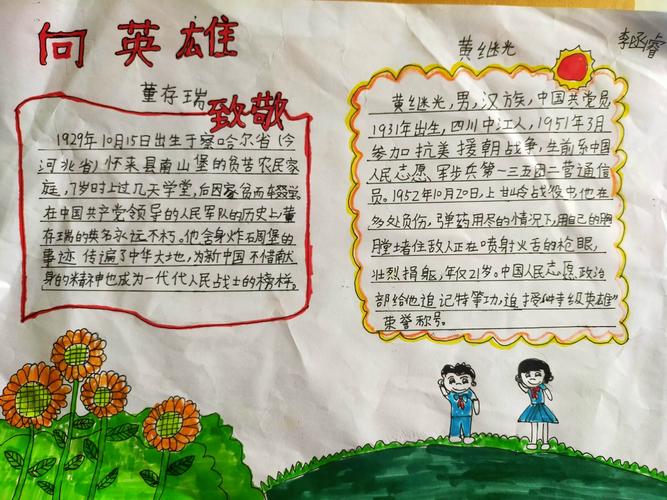 向英雄
致敬
董存瑞
1929年10月15日出生于察哈尔省(今
河北省)怀来县南山堡的负苦农民家
庭,7岁时上过几天学堂,后因家贫而辍学。
在中国共产党领导的人民军队的历史上,董
存瑞的英名永远不朽。他舍身炸石周堡的
事迹 传遍了中华大地,为新中国 不惜献
身的精神也成为一代代人民战士的榜样。
黄继光
李丞睿
黄继光,男,汉族,中国共党员
1931年出生,四川中江人,1951年3月
参加抗美援朝战争,生前系中国
人民志愿军步兵第一三五团二营通信
员。1952年10月20日,上甘岭战役中,他在
多处负伤,弹药用尽的情况下,用自己的胸
膛堵住敌人正在喷射火舌的枪眼,
壮烈捐躯,年仅21岁。中国人民志愿政治
部给他追记特等功,追授"特级英雄"
荣誉称号。